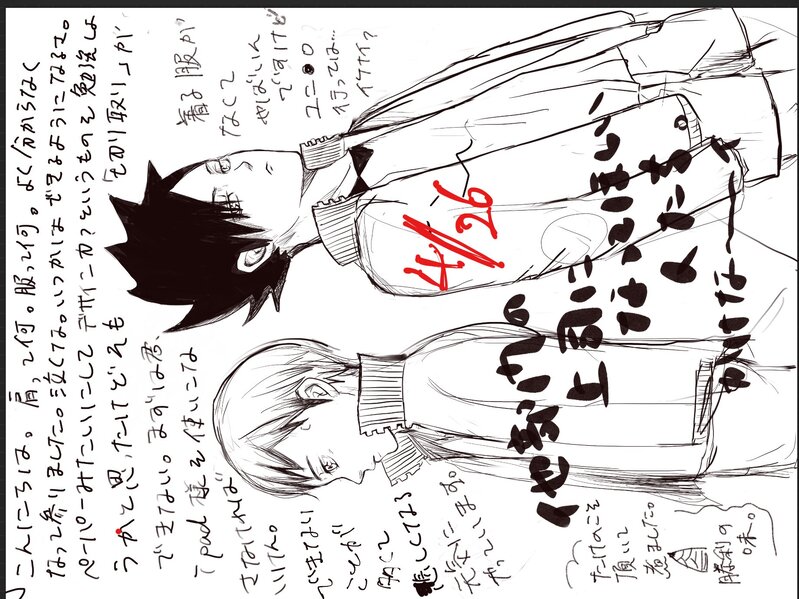 こんにちは。肩って何。服って何。よく分からなく
なって参りました。泣くな。いつかはできるようになるよ。
ペーパーみたいにしてデザインカ?というものを勉強しよ
うかと思ったけどそもそも「切り取り」が
できない。まずは君、
ipad様を使いこな
さなければ
いけん。
できない
ことが
やっています。
着る服が
なくて
やばいん
ですけど
ユニ●ロ
行っては…
イケナイ?
4/26
上司に
なってほしい
たけのこを
頂いて
煮ました。
勝利の
味。